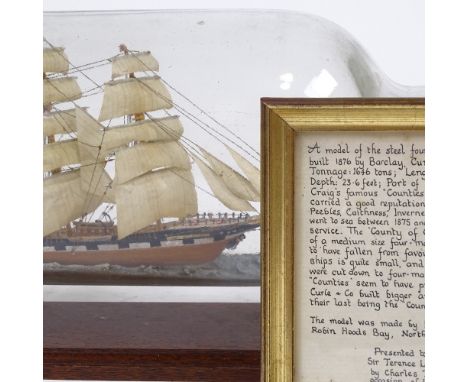 A model of the steel fou
built 1876 by Barclay, Cur
Tonnage: 1646 tons; Leng
Depth: 23·6 feet; Port of
Craig's famous 'Counties
carried a good reputation
Peebles, Caithness, Inverne
went to sea between 1875 and
service. The 'County of
of a medium size four-ma
to have fallen from favou
ships is quite small, and
were cut down to four-ma
'Counties' seem to have p
Curle & Co built bigger a
their last being the 'Coun
The model was made by
Robin Hoods Bay, North
Presented to
Sir Terence L
by Charles